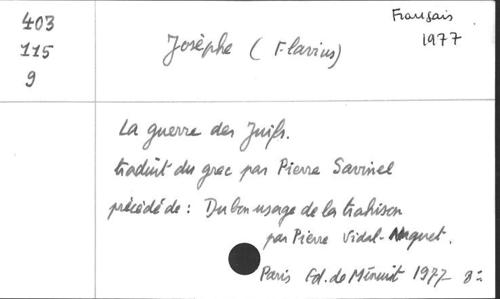 403
115
9
Josèphe (Flavius)
Français
1977
La guerre des Juifs.
traduit du grec par Pierre Savinel
précédé de : Du bon usage de la trahison
par Pierre Vidal-Naquet.
Paris Ed. de Minuit 1977 8º